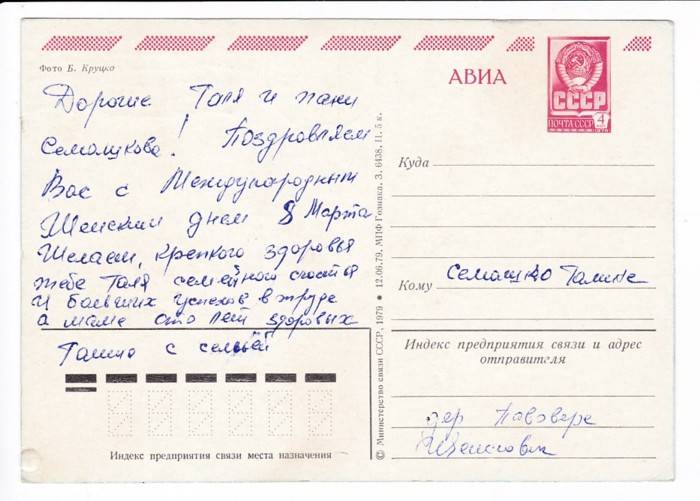 Фото Б. Круцко
АВИА
СССР
ПОЧТА СССР 4
Дорогие Галя и пани
Семашкова! Поздравляем
Вас с Международным
Женским днем 8 Марта
Желаем, крепкого здоровья
тебе Галя семейного счастья
и больших успехов в труде
а маме сто лет здоровых
Галина с семьёй
Индекс предприятия связи места назначения
© Министерство связи СССР, 1979 ● 12.06.79. МПФ Гознака. З. 6438. Ц. 5 к.
Куда
Кому Семашко Галине
Индекс предприятия связи и адрес
отправителя
дер